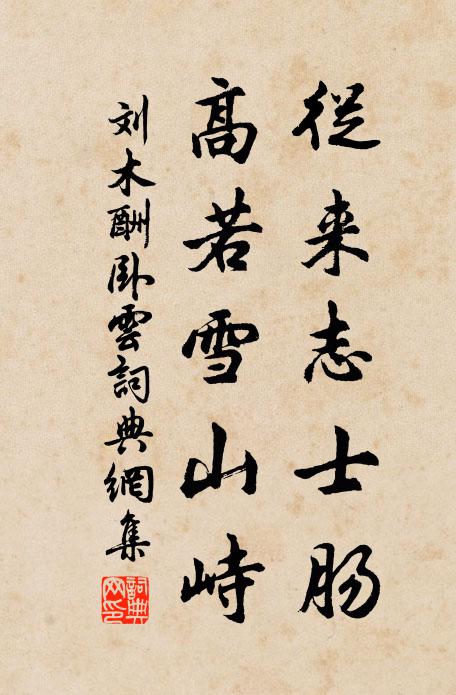 從来志士肠
高若雪山峙
刘木酬卧雲詞典網集
詞典網印